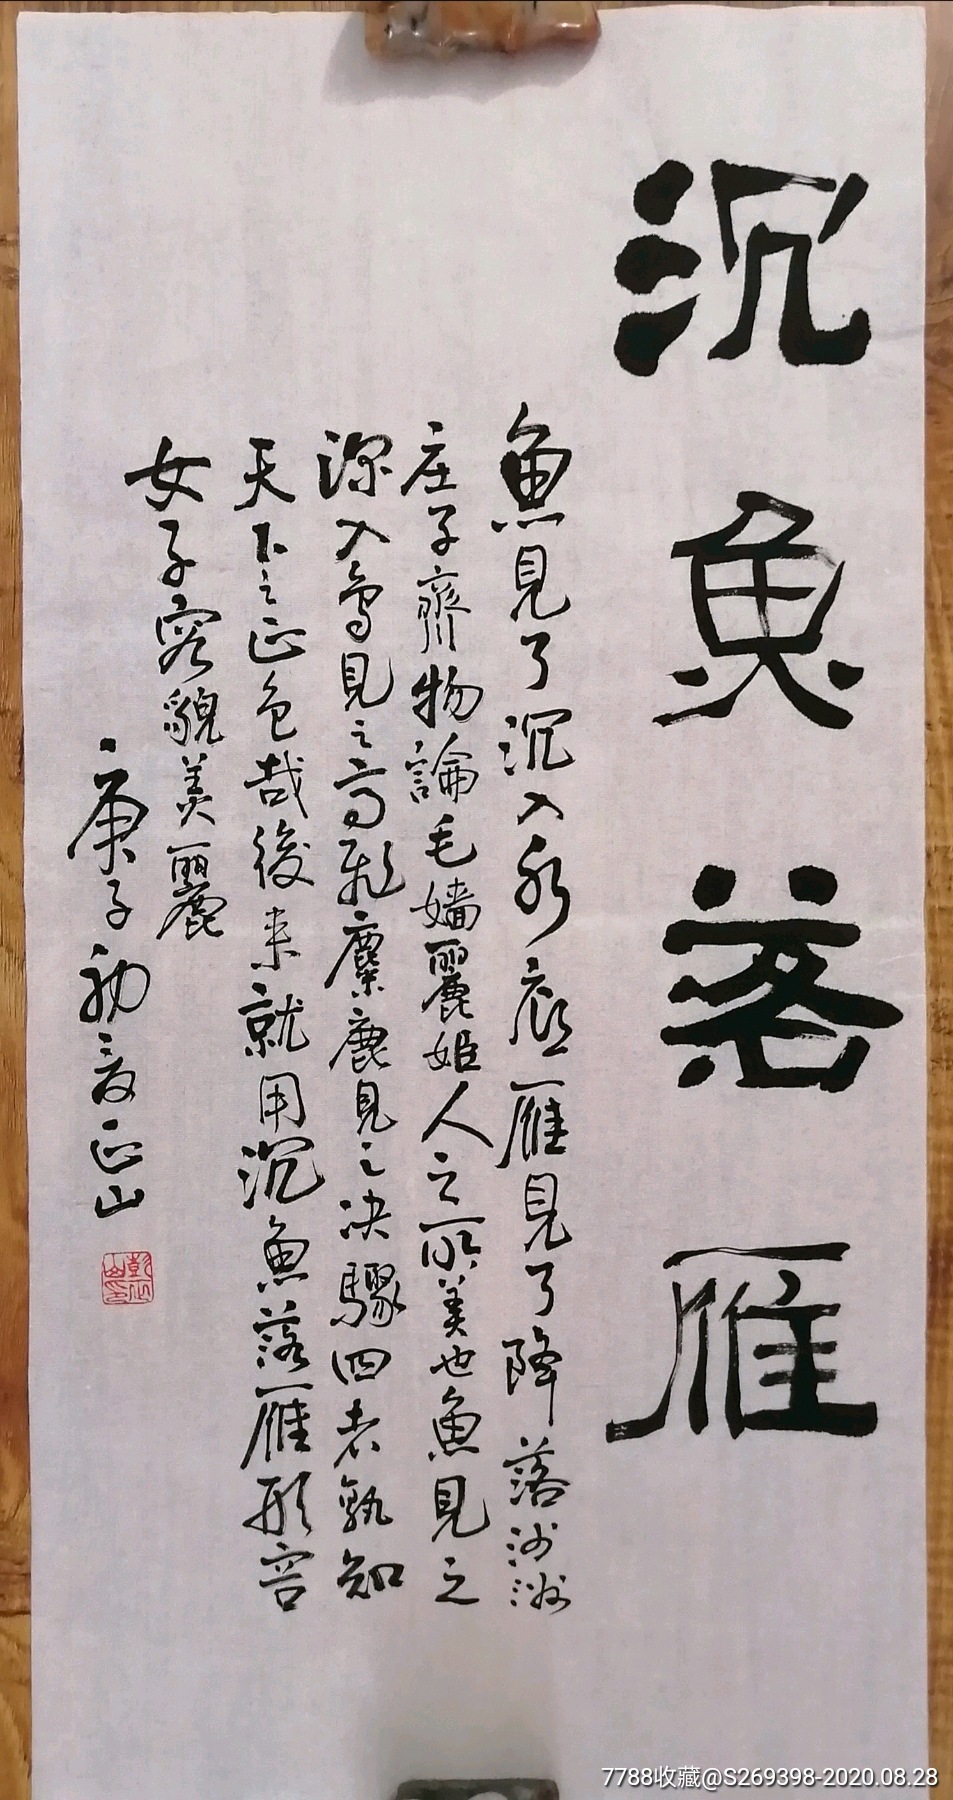 沉魚落雁
魚見了沉入水底雁見了降落沙洲
庄子齊物論毛嬙麗姬人之所美也魚見之
深入鳥見之高飛麋鹿見之决驟四者孰知
天下之正色哉後来就用沉魚落雁形容
女子容貌美麗
庚子初夏正山
7788收藏@S269398-2020.08.28